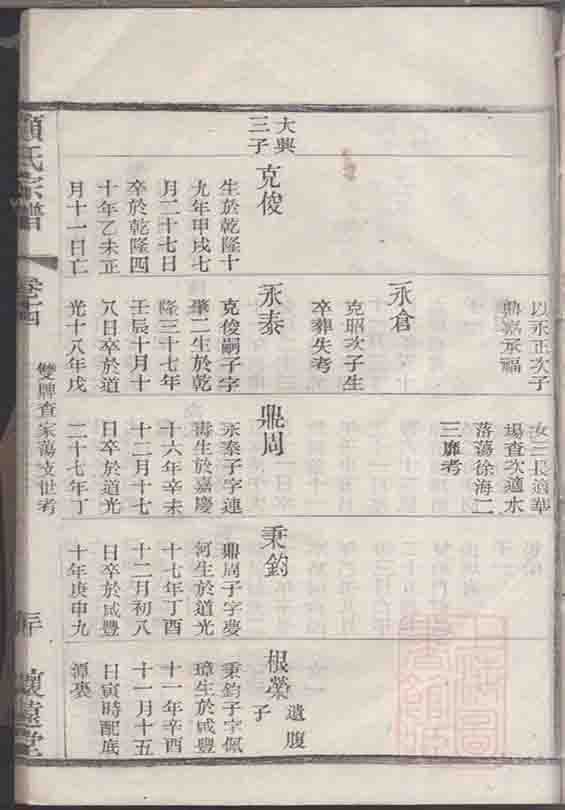 以永正次子
鼎嘉承福
永倉
克昭次子生
卒葬失考
永泰
克俊嗣子字
肇二生於乾
隆三十七年
壬辰十月十
八日卒於道
光十八年戊
大興
三子
克俊
生於乾隆十
九年甲戌七
月二十七日
卒於乾隆四
十年乙未正
月十一日亡
女三長適華
場查次適水
落蕩徐海二
三靡考
鼎周
永泰子字連
壽生於嘉慶
十六年辛未
十二月十七
日卒於道光
二十七年丁
秉鈞
鼎周子字慶
河生於道光
十七年丁酉
十二月初八
日卒於咸豐
十年庚申九
根榮
遺腹
子
秉鈞子字佩
璋生於咸豐
十一年辛酉
十一月十五
日寅時配底
潭褒
顧氏宗譜
卷十四
雙牌查家蕩支世考
懷遠堂